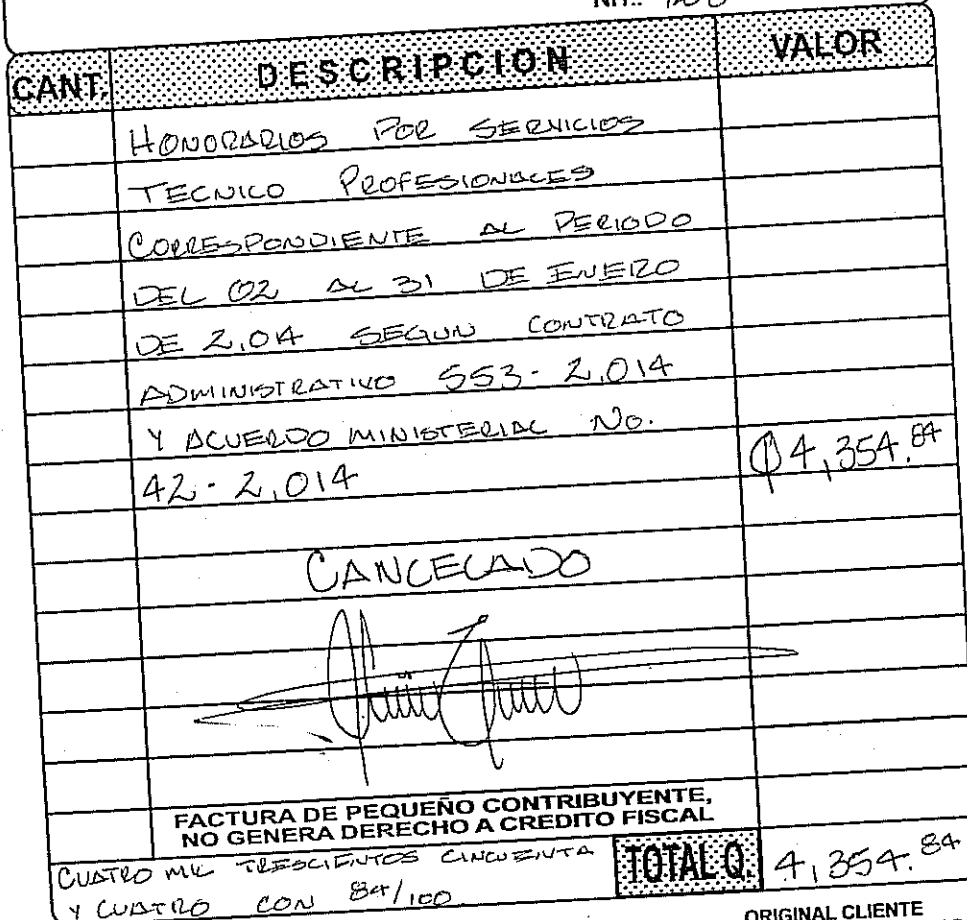 NIT.:
CANT. DESCRIPCION VALOR
HONORARIOS POR SERVICIOS
TECNICO PROFESIONALES
CORRESPONDIENTE AL PERIODO
DEL 02 AL 31 DE ENERO
DE 2,014 SEGUN CONTRATO
ADMINISTRATIVO 553-2,014
Y ACUERDO MINISTERIAL No.
42-2,014 Q4,354.84
CANCELADO
FACTURA DE PEQUEÑO CONTRIBUYENTE,
NO GENERA DERECHO A CREDITO FISCAL
CUATRO MIL TRESCIENTOS CINCUENTA TOTAL Q. 4,354.84
Y CUATRO CON 84/100
ORIGINAL CLIENTE